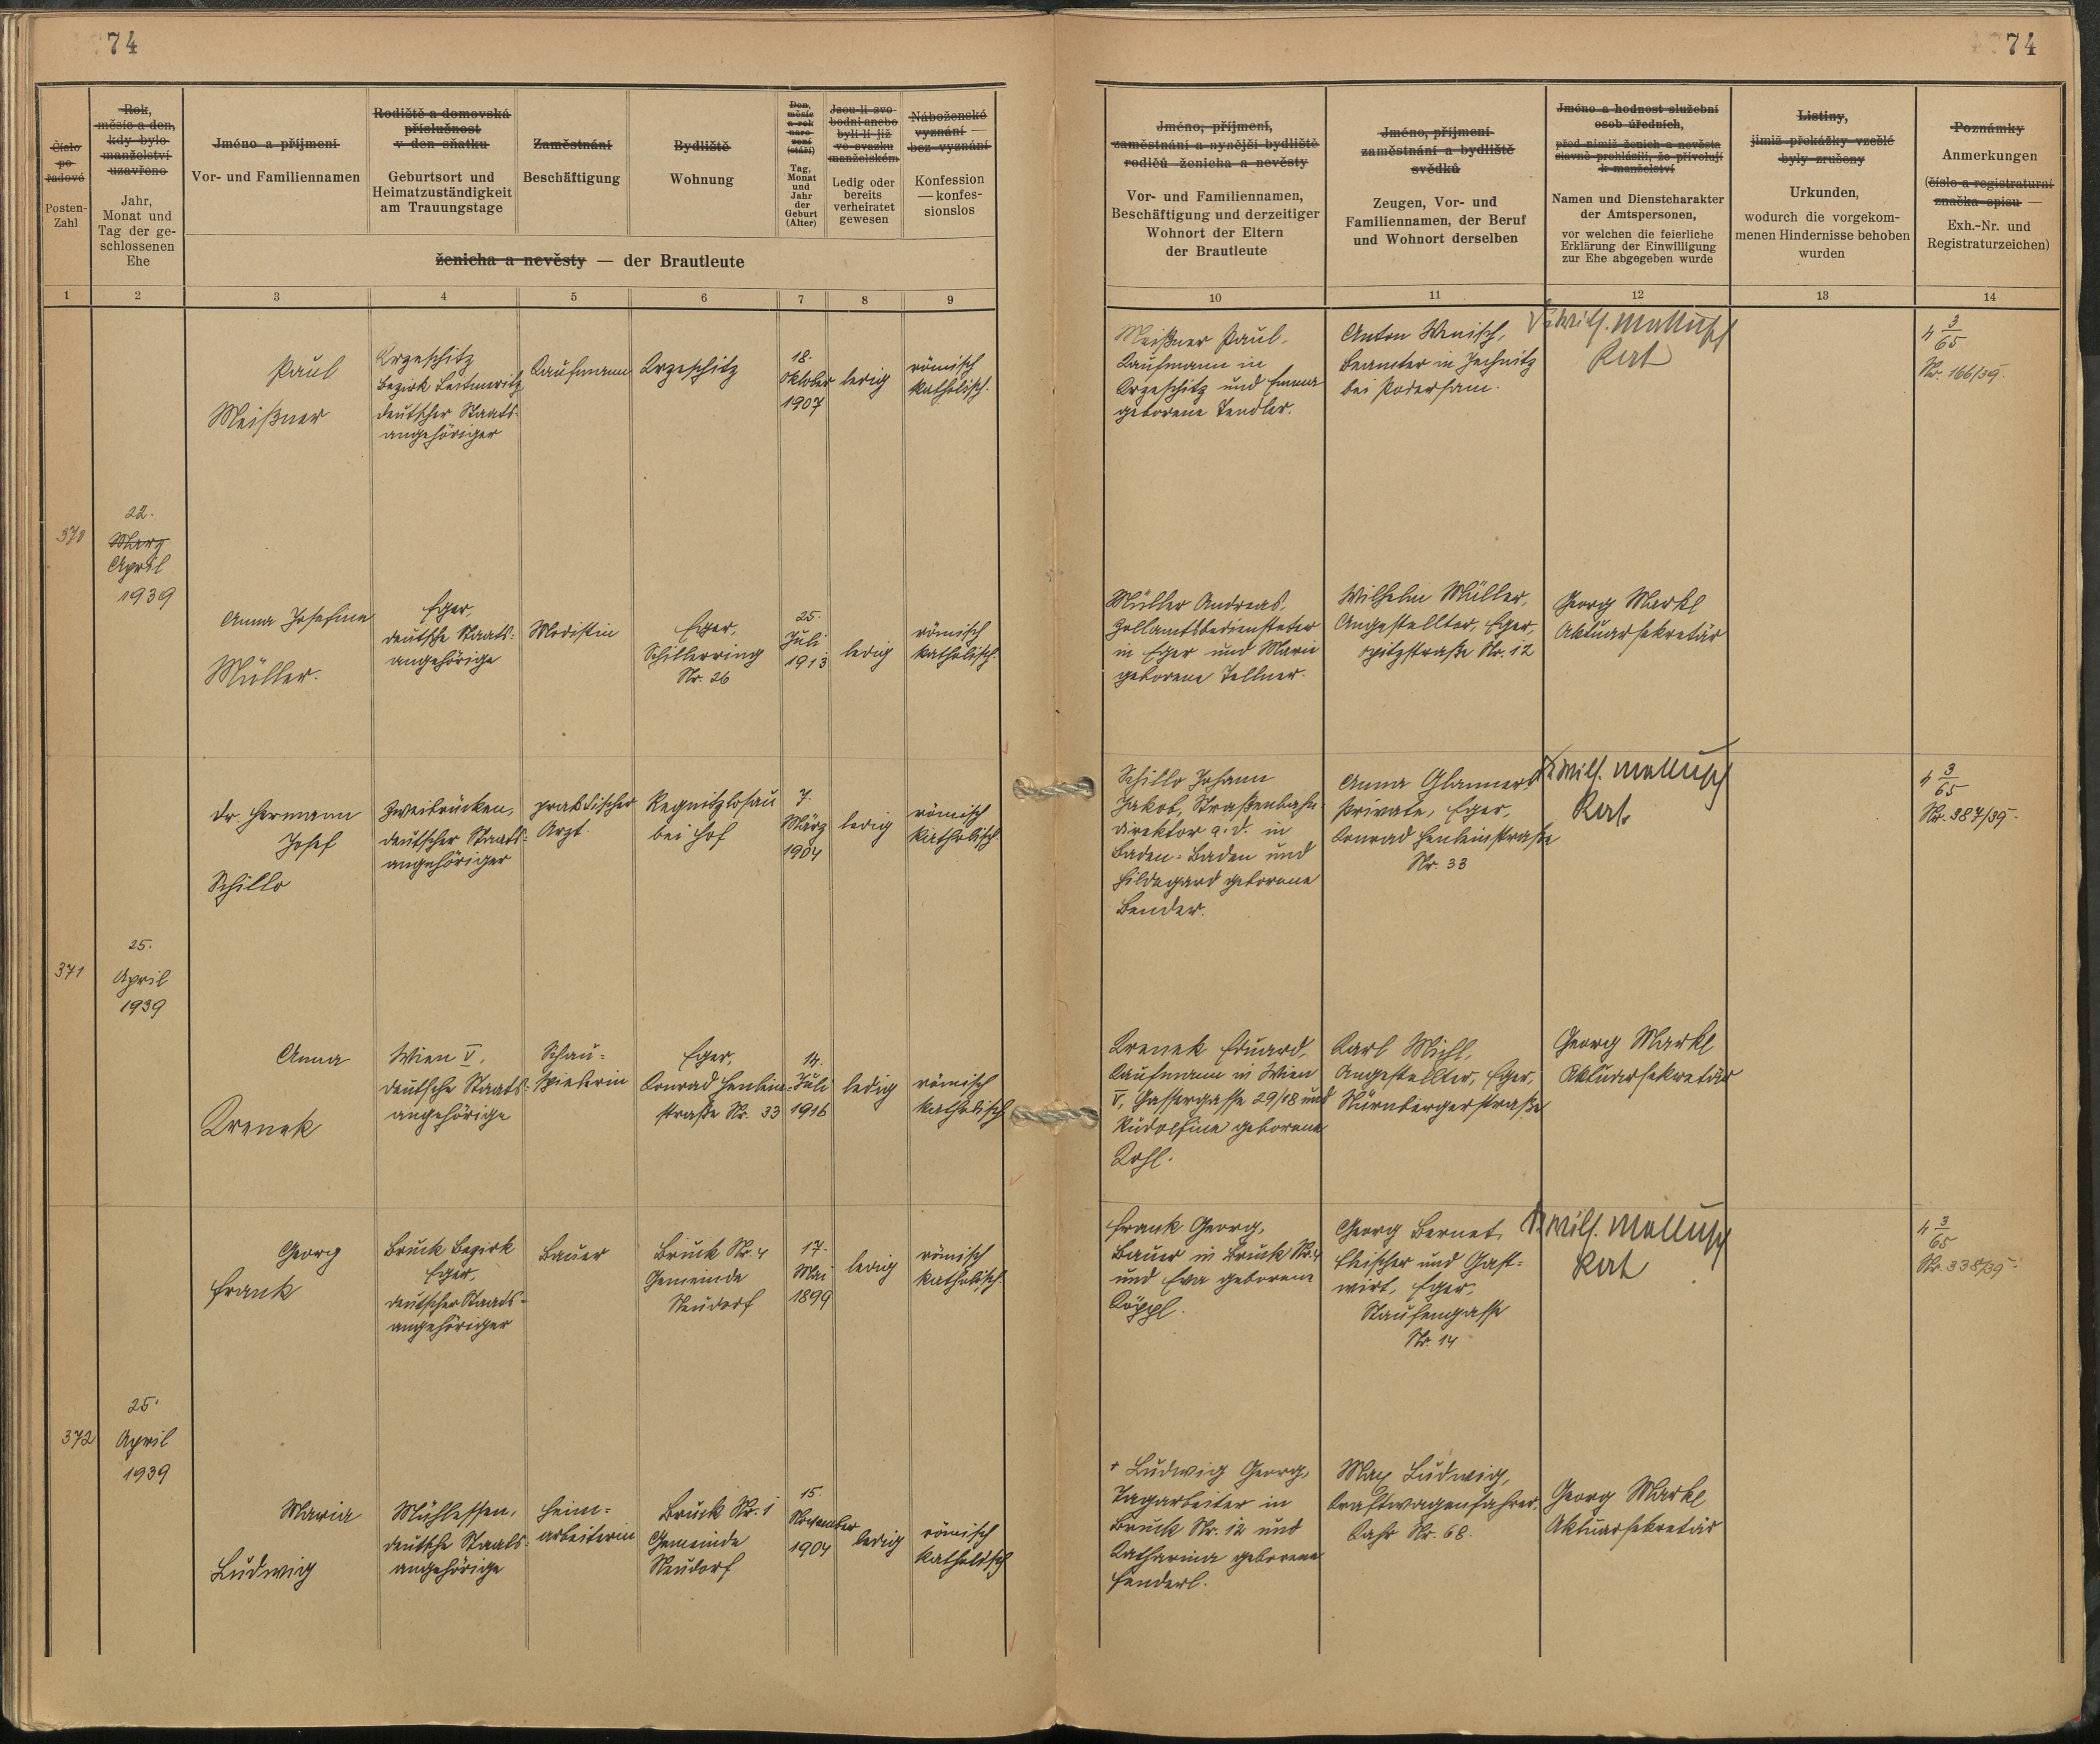 74
Číslo
po-
řadové
Posten-
Zahl
Rok,
měsíc a den,
kdy bylo
manželství
uzavřeno
Jahr,
Monat und
Tag der ge-
schlossenen
Ehe
Jméno a příjmení
Vor- und Familiennamen
Rodiště a domovská
příslušnost
v den sňatku
Geburtsort und
Heimatzuständigkeit
am Trauungstage
Zaměstnání
Beschäftigung
Bydliště
Wohnung
Den,
měsíc
a rok
naro-
zení
(stáří)
Tag,
Monat
und
Jahr
der
Geburt
(Alter)
Jsou-li svo-
bodni anebo
byli-li již
ve svazku
manželském
Ledig oder
bereits
verheiratet
gewesen
Náboženské
vyznání —
bez vyznání
Konfession
— konfes-
sionslos
ženicha a nevěsty — der Brautleute
1 2 3 4 5 6 7 8 9
370
22.
März
April
1939
Paul
Meißner
Bezirk Leitmeritz
deutscher Staats-
angehöriger
Kaufmann
18.
Oktober
1907
ledig
römisch
katholisch.
Anna Josefine
Müller.
Eger,
deutsche Staats-
angehörige
Modistin
Eger,
Schillerring
Nr. 26
25.
Juli
1913
ledig
römisch
katholisch.
371
25.
April
1939
Dr. Hermann
Josef
Schillo
Zweibrücken,
deutscher Staats-
angehöriger
praktischer
Arzt.
Regnitzlosau
bei Hof
7.
März
1904
ledig
römisch
katholisch.
Anna
Krenek
Wien V,
deutsche Staats-
angehörige
Schau-
spielerin
Eger,
Konrad Henlein-
straße Nr. 33
14.
Juli
1916
ledig
römisch
katholisch
372
25.
April
1939
Georg
Frank
Bruck Bezirk
Eger,
deutscher Staats-
angehöriger
Bauer
Bruck Nr. 4
Gemeinde
Neudorf
17.
Mai
1899
ledig
römisch
katholisch.
Maria
Ludwig
Mühlessen,
deutsche Staats-
angehörige
Heim-
arbeiterin
Bruck Nr. 1
Gemeinde
Neudorf
15.
November
1904
ledig
römisch
katholisch
74
Jméno, příjmení,
zaměstnání a nynější bydliště
rodičů ženicha a nevěsty
Vor- und Familiennamen,
Beschäftigung und derzeitiger
Wohnort der Eltern
der Brautleute
Jméno, příjmení
zaměstnání a bydliště
svědků
Zeugen, Vor- und
Familiennamen, der Beruf
und Wohnort derselben
Jméno a hodnost služební
osob úředních,
před nimiž ženich a nevěsta
slavně prohlásili, že přivolují
k manželství
Namen und Dienstcharakter
der Amtspersonen,
vor welchen die feierliche
Erklärung der Einwilligung
zur Ehe abgegeben wurde
Listiny,
jimiž překážky vzešlé
byly zrušeny
Urkunden,
wodurch die vorgekom-
menen Hindernisse behoben
wurden
Poznámky
Anmerkungen
(číslo a registraturní
značka spisu —
Exh.-Nr. und
Registraturzeichen)
10 11 12 13 14
Meißner Paul,
Kaufmann in
und Emma
geborene Tendler.
Anton Wenisch,
Beamter in Jechnitz
bei Podersam.
Rat
4 3/65
Nr. 166/39.
Müller Andreas,
Zollamtsbediensteter
in Eger und Marie
geborene Tellner.
Wilhelm Müller,
Angestellter, Eger,
Opitzstraße Nr. 12
Georg Markl
Aktuarsekretär
Schillo Johann
Jakob, Straßenbahn-
direktor a. d. in
Baden-Baden und
Hildegard geborene
Bender.
Private, Eger,
Konrad Henleinstraße
Nr. 33
Rat
4 3/65
Nr. 387/39.
Krenek Eduard,
Kaufmann in Wien
V, Gassergasse 29/18 und
Rudolfine geborene
Kohl.
Karl Michl,
Angestellter, Eger,
Nürnbergerstraße
Georg Markl
Aktuarsekretär
Frank Georg,
Bauer in Bruck Nr. 4
und Eva geborene
Köppl.
Georg Bernet,
Fleischer und Gast-
wirt, Eger,
Staufengasse
Nr. 14
Rat
4 3/65
Nr. 338/39.
+ Ludwig Georg,
Tagarbeiter in
Bruck Nr. 12 und
Katharina geborene
Fenderl.
Max Ludwig,
Kraftwagenfahrer,
Nr. 68.
Georg Markl
Aktuarsekretär